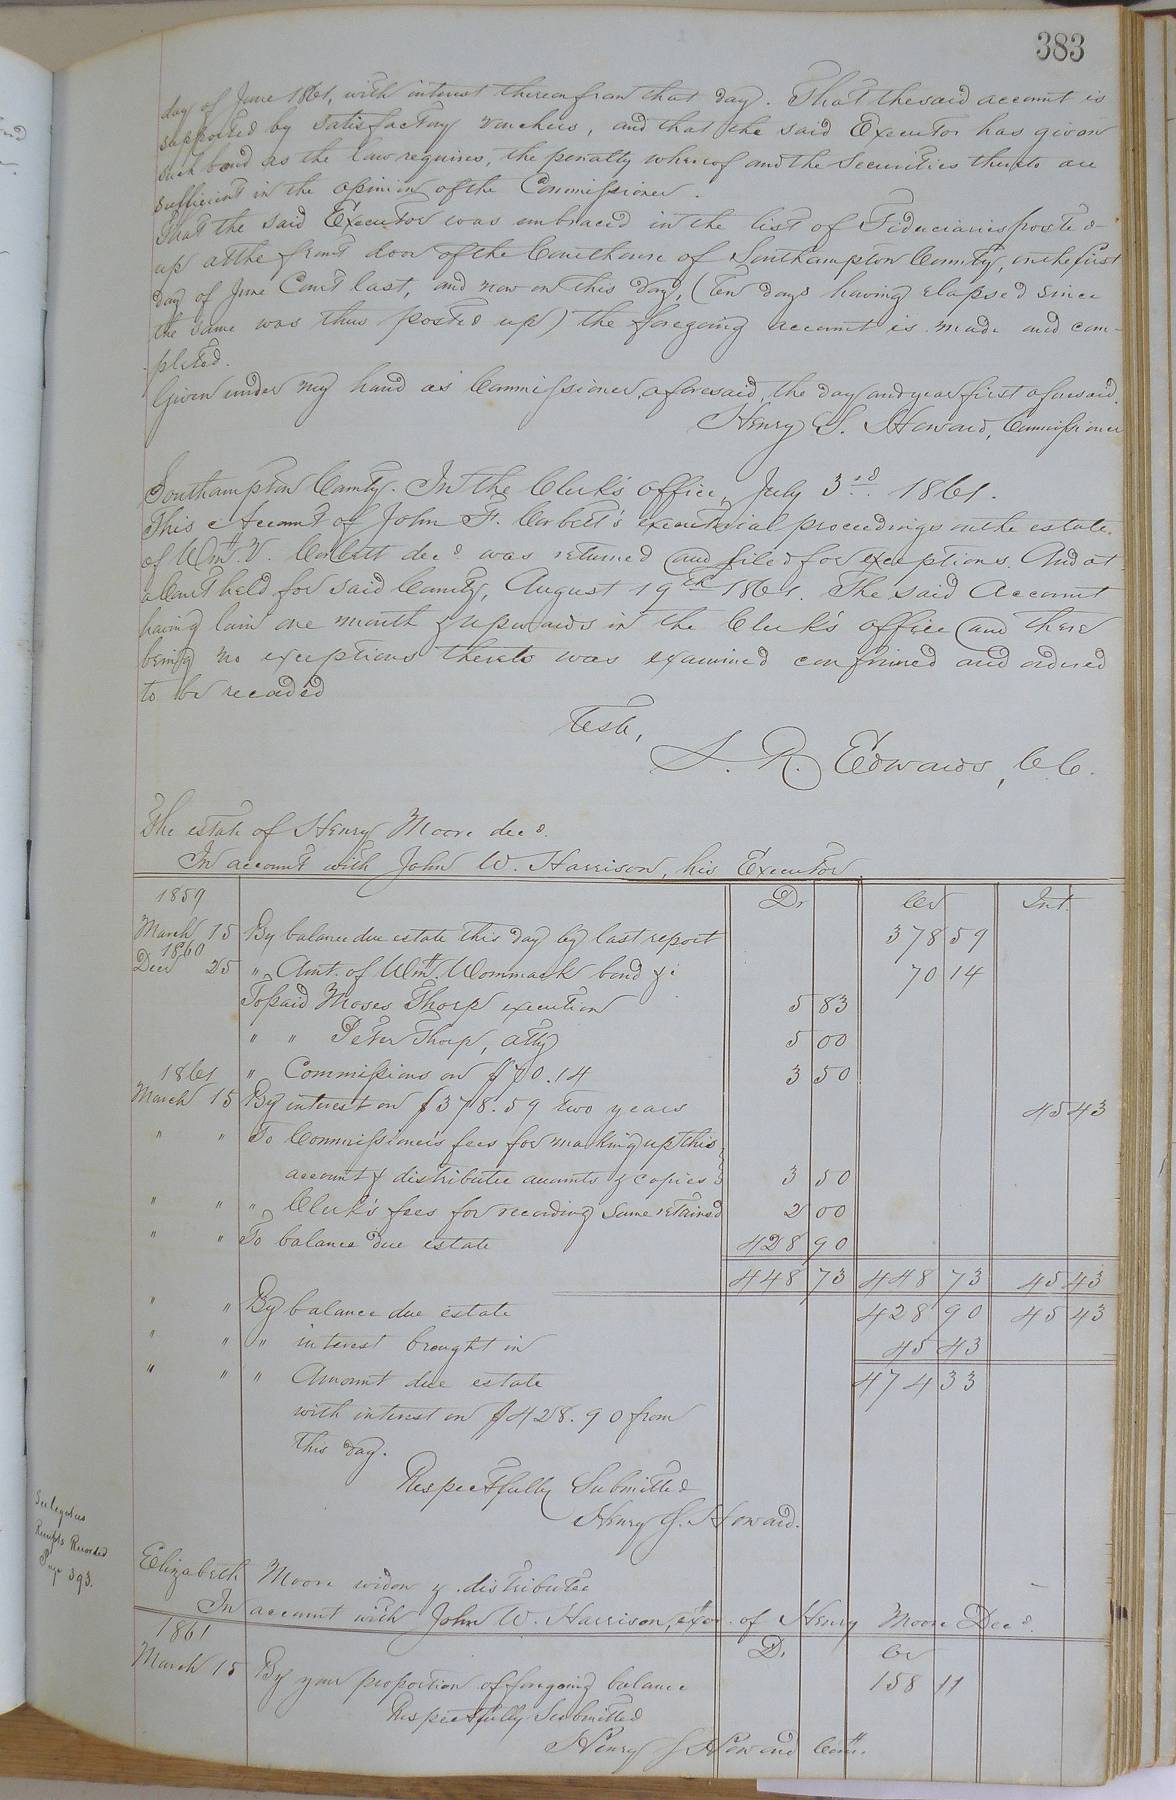 383
day of June 1861, with interest thereon from that day. That the said account is
supported by satisfactory vouchers, and that the said Executor has given
such bond as the law requires, the penalty whereof and the securities thereto are
sufficient in the opinion of the Commissioner.
That the said Executor was embraced in the list of Fiduciaries posted
up at the front door of the Courthouse of Southampton County, on the first
day of June Court last, and now on this day, (Ten days having elapsed since
the same was thus posted up) the foregoing account is made and com-
pleted.
Given under my hand as Commissioner aforesaid, the day and year first aforesaid.
Henry S. Howard, Commissioner
Southampton County. In the Clerk's office, July 3rd. 1861.
This account of John F. Corbett's executorial proceedings on the estate
of Wm. V. Corbitt decd was returned and filed for exceptions. And at
a Court held for said County, August 19th 1861. The said Account
having lain one month & upwards in the Clerk's office and there
being no exceptions thereto was examined confirmed and ordered
to be recorded
Teste,
L. R. Edwards, CC.
The estate of Henry Moore decd.
In account with John W. Harrison, his Executor
1859 Dr Cr Int.
March 15 By balance due estate this day by last report 378 59
1860
Decr 25 " Amt. of Wm. Wommack bond &c 70 14
To paid Moses Tharp execution 5 83
" " Peter Tharp, atty 5 00
1861 " Commissions on $70.14 3 50
March 15 By interest on $378.59 two years 45 43
" " To Commissioner's fees for making up this
account & distributee accounts & copies 3 50
" " " Clerk's fees for recording same retained 2 00
" " To balance due estate 428 90
448 73 448 73 45 43
" " By balance due estate 428 90 45 43
" " " interest brought in 45 43
" " " Amount due estate 474 33
with interest on $428.90 from
this day.
Respectfully Submitted
Henry S. Howard.
See legatees
Receipts Recorded
Page 393.
Elizabeth Moore widow & distributee
In account with John W. Harrison, exor. of Henry Moore Decd.
1861 Dr Cr
March 15 By your proportion of foregoing balance 158 11
Respectfully Submitted
Henry S Howard Com.